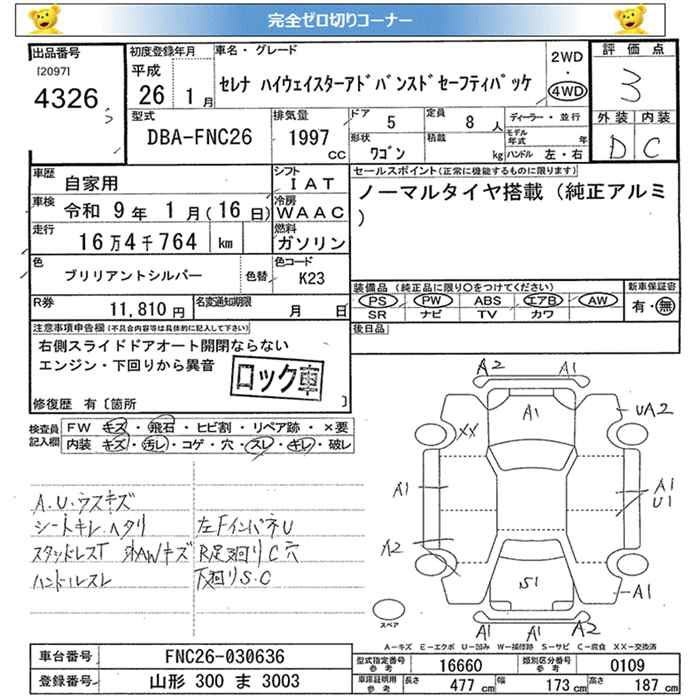 完全ゼロ切りコーナー
出品番号
[2097]
4326
S
初度登録年月
平成
26 1月
車名・グレード
セレナ ハイウェイスターアドバンスドセーフティパッケ
2WD
・
4WD
評価点
3
外装 内装
D C
型式
DBA-FNC26
排気量
1997
CC
ドア
5
定員
8人
形状
ワゴン
積載
kg
ディーラー・並行
モデル年式 年
ハンドル 左・右
車歴
自家用
シフト
IAT
車検
令和 9年 1月(16日)
冷房
WAAC
走行
16万4千764 km
燃料
ガソリン
色
ブリリアントシルバー
色替
色コード
K23
R券
11,810円
名変通知期限
月 日
セールスポイント(正常に機能するものに限ります)
ノーマルタイヤ搭載(純正アルミ
)
装備品(純正品に限り○をつけてください)
PS PW ABS エアB AW
SR ナビ TV カワ
新車保証書
有・無
後日品
注意事項申告欄(不具合内容等は具体的に記入して下さい)
右側スライドドアオート開閉ならない
エンジン・下回りから異音
ロック車
修復歴 有〔箇所 〕
検査員記入欄
FW キズ・飛石・ヒビ割・リペア跡・×要
内装 キズ・汚レ・コゲ・穴・スレ・キレ・破レ
A.U.ウスキズ
シートキレ.ヘタリ 左FインパネU
スタッドレスT 外AWキズ R足廻りC穴
ハンドルスレ 下廻りS.C
A2 A1
A1
UA2
XX
A1
A1
U1
A2
S1
A1
A1 A1 A2
スペア
A-キズ E-エクボ U-凹み W-補修跡 S-サビ C-腐食 XX-交換済
車台番号
FNC26-030636
登録番号
山形 300 ま 3003
型式指定番号
参考
16660
類別区分番号
参考
0109
車庫証明用
参考
長さ
477 cm
幅
173 cm
高さ
187 cm